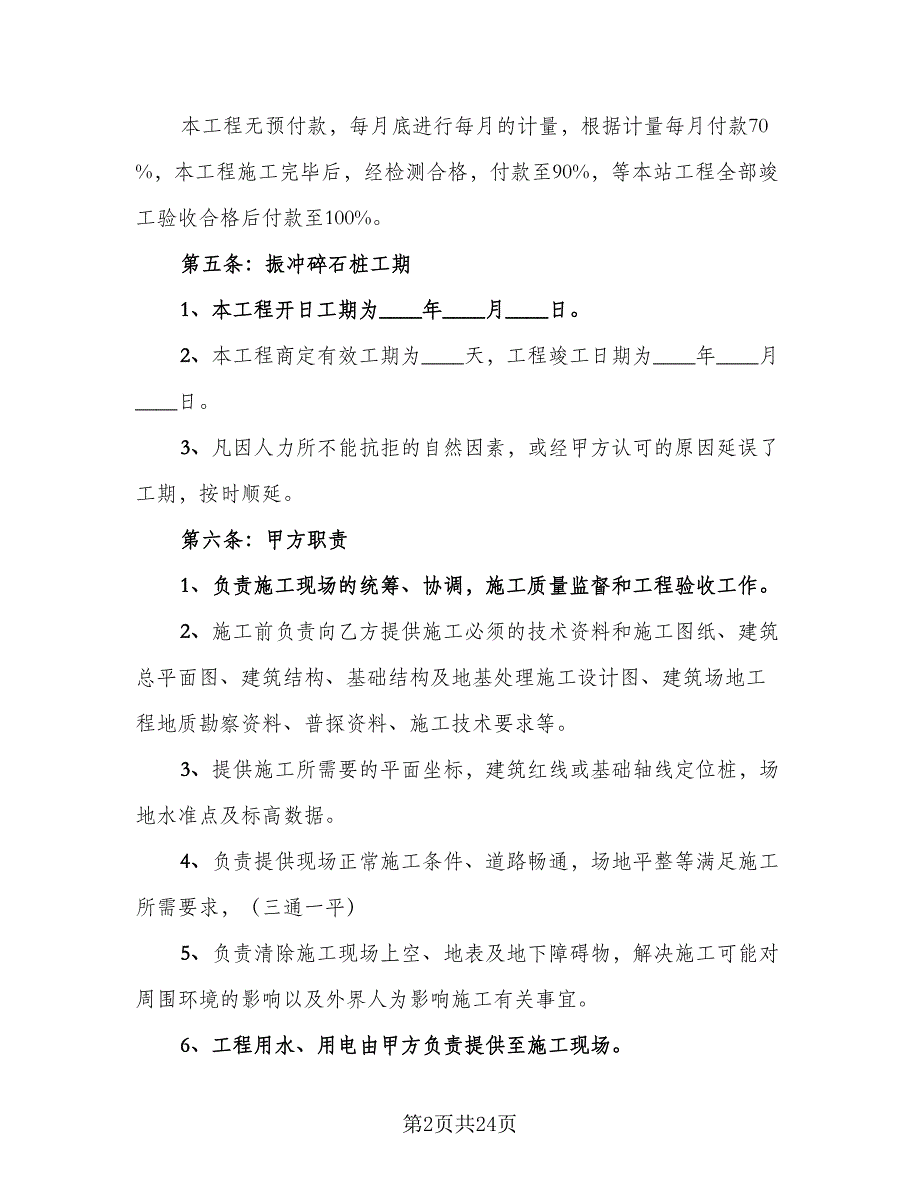 本工程无预付款，每月底进行每月的计量，根据计量每月付款70
%，本工程施工完毕后，经检测合格，付款至90%，等本站工程全部竣
工验收合格后付款至100%。
第五条：振冲碎石桩工期
1、本工程开日工期为____年____月____日。
2、本工程商定有效工期为____天，工程竣工日期为____年____月
____日。
3、凡因人力所不能抗拒的自然因素，或经甲方认可的原因延误了
工期，按时顺延。
第六条：甲方职责
1、负责施工现场的统筹、协调，施工质量监督和工程验收工作。
2、施工前负责向乙方提供施工必须的技术资料和施工图纸、建筑
总平面图、建筑结构、基础结构及地基处理施工设计图、建筑场地工
程地质勘察资料、普探资料、施工技术要求等。
3、提供施工所需要的平面坐标，建筑红线或基础轴线定位桩，场
地水准点及标高数据。
4、负责提供现场正常施工条件、道路畅通，场地平整等满足施工
所需要求，（三通一平）
5、负责清除施工现场上空、地表及地下障碍物，解决施工可能对
周围环境的影响以及外界人为影响施工有关事宜。
6、工程用水、用电由甲方负责提供至施工现场。
第2页共24页